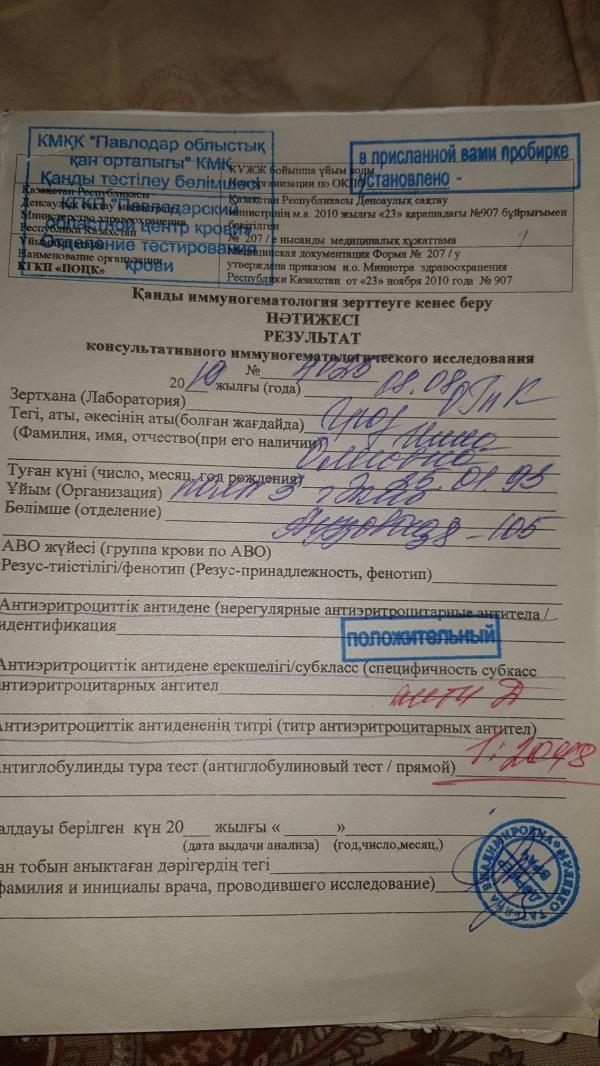 КМҚК "Павлодар облыстық
қан орталығы" КМК
Қанды тестілеу бөлімшесі
КГКП "Павлодарский
областной центр крови"
Отделение тестирования
крови
в присланной вами пробирке
установлено -
КҰЖЖ бойынша ұйым коды
Код организации по ОКПО
Қазақстан Республикасы
Денсаулық сақтау министрлігі
Министерство здравоохранения
Республики Казахстан
Ұйымның атауы
Наименование организации
КГКП «ПОЦК»
Қазақстан Республикасы Денсаулық сақтау
министрінің м.а. 2010 жылғы «23» қарашадағы №907 бұйрығымен
бекітілген
№ 207 / е нысанды медициналық құжаттама
Медицинская документация Форма № 207 / у
утверждена приказом и.о. Министра здравоохранения
Республики Казахстан от «23» ноября 2010 года № 907
Қанды иммуногематология зерттеуге кенес беру
НӘТИЖЕСІ
РЕЗУЛЬТАТ
консультативного иммуногематологического исследования
№
2019 жылғы (года) 08.08
Зертхана (Лаборатория)
Тегі, аты, әкесінің аты(болған жағдайда)
(Фамилия, имя, отчество(при его наличии)
Туған күні (число, месяц, год рождения) 25.01.93
Ұйым (Организация)
Бөлімше (отделение) - 105
АВО жүйесі (группа крови по АВО)
Резус-тиістілігі/фенотип (Резус-принадлежность, фенотип)
Антиэритроциттік антидене (нерегулярные антиэритроцитарные антитела /
идентификация положительный
Антиэритроциттік антидене ерекшелігі/субкласс (специфичность субкасс
антиэритроцитарных антител анти Д
Антиэритроциттік антидененің титрі (титр антиэритроцитарных антител)
1:2048
Антиглобулинды тура тест (антиглобулиновый тест / прямой)
алдауы берілген күн 20 жылғы « »
(дата выдачи анализа) (год,число,месяц,)
ан тобын аныктаған дәрігердің тегі
фамилия и инициалы врача, проводившего исследование)
ТАТЬЯНА ВЛАДИМИРОВНА